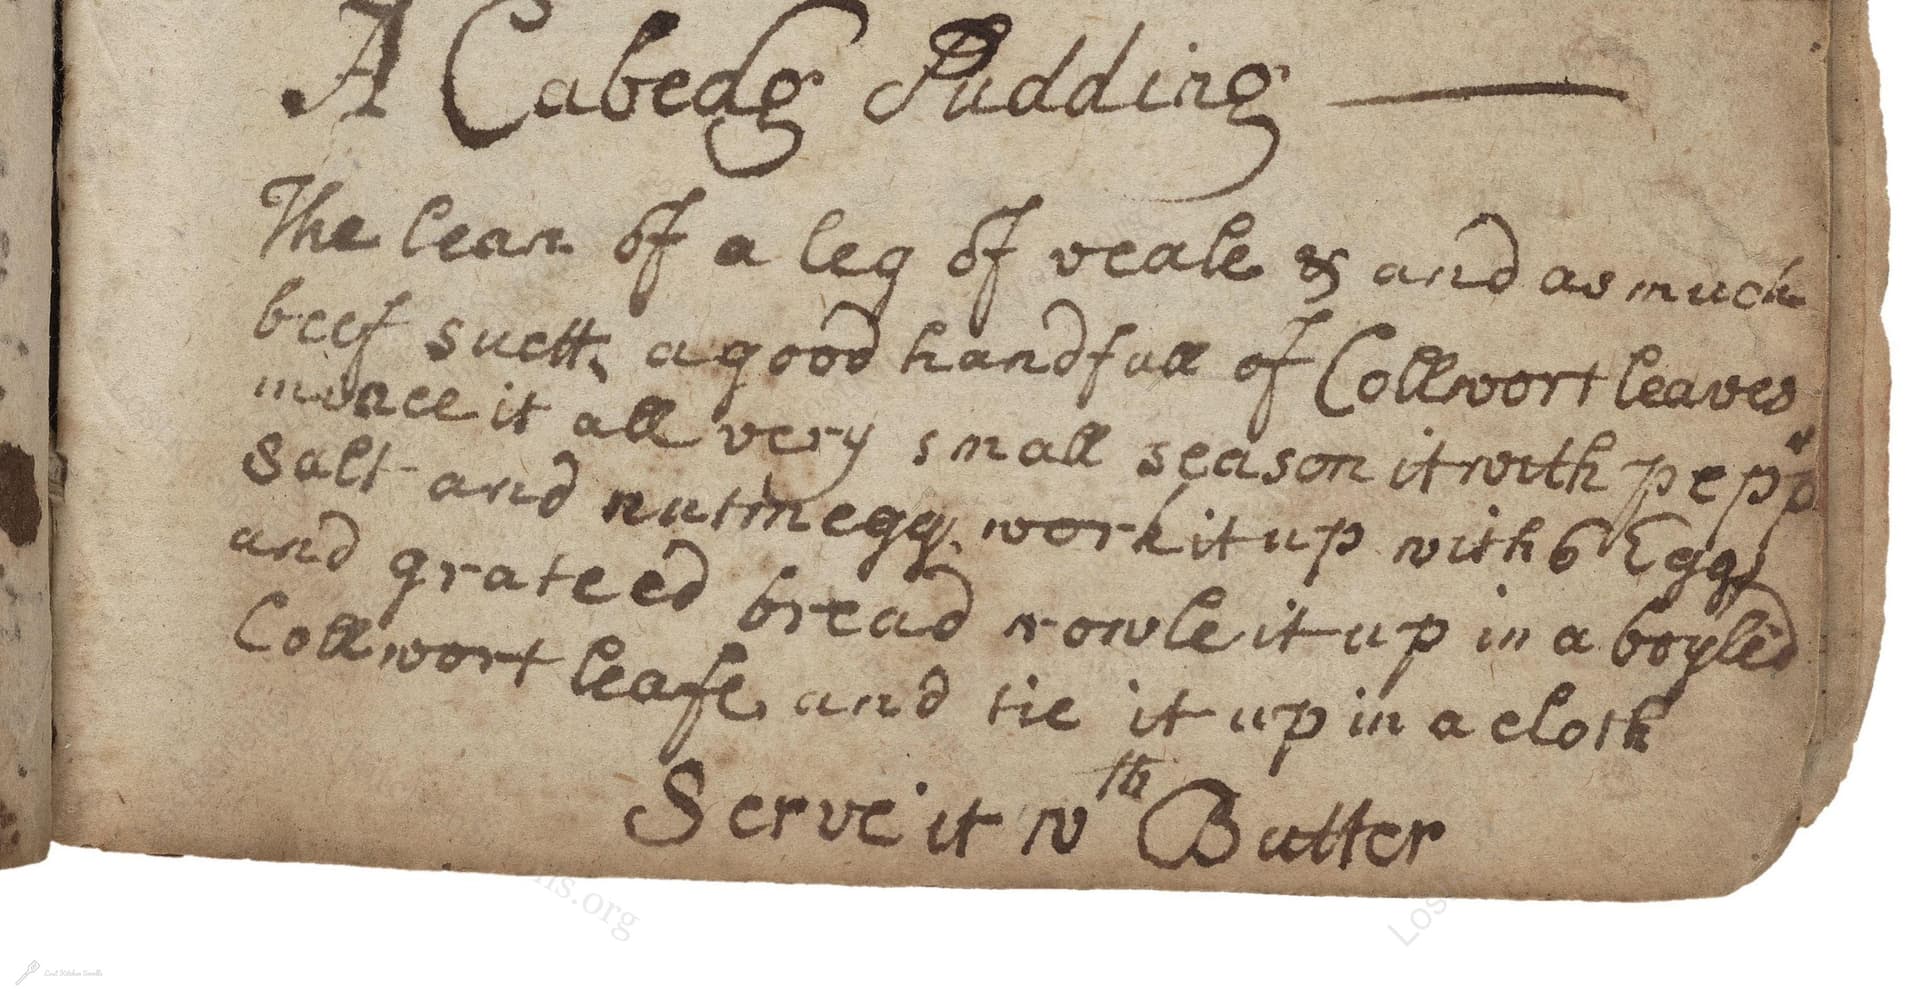 A Cabedg Pudding
The lean of a leg of veale & and as much
beef suett, a good handfull of Collwort leaves
mince it all very small season it with pepp^r
salt and nutmegg, work it up with 6 Eggs
and grateed bread rowle it up in a boyled
Collwort leafe, and tie it up in a cloth
Serve it w^th Butter
ns.org
Los
Lost Kitchen Scrolls